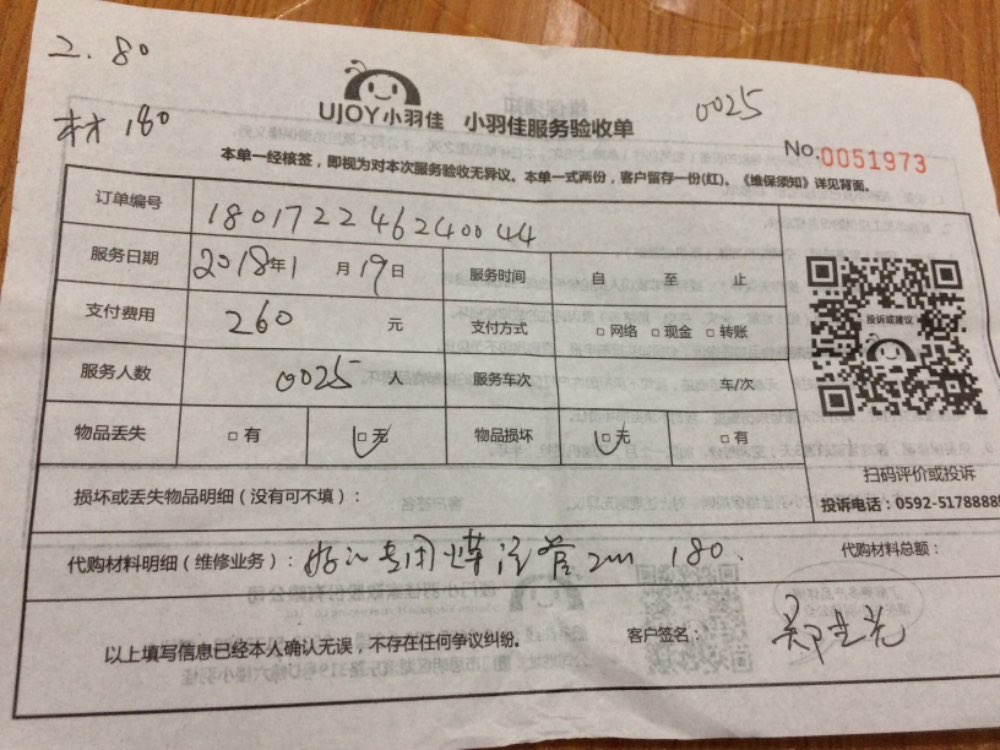 2. 80
材 180
UJOY小羽佳 小羽佳服务验收单
0025
No.0051973
本单一经核签，即视为对本次服务验收无异议。本单一式两份，客户留存一份(红)。《维保须知》详见背面。
订单编号 180172246240044
服务日期 2018年1月19日 服务时间 自 至 止
支付费用 260 元 支付方式 □网络 □现金 □转账
服务人数 0025 人 服务车次 车/次
物品丢失 □有 □无 物品损坏 □无 □有
投诉或建议
扫码评价或投诉
投诉电话：0592-5178888
损坏或丢失物品明细（没有可不填）：
代购材料明细（维修业务）： 专用煤 管2m 180.
代购材料总额：
以上填写信息已经本人确认无误，不存在任何争议纠纷。
客户签名：